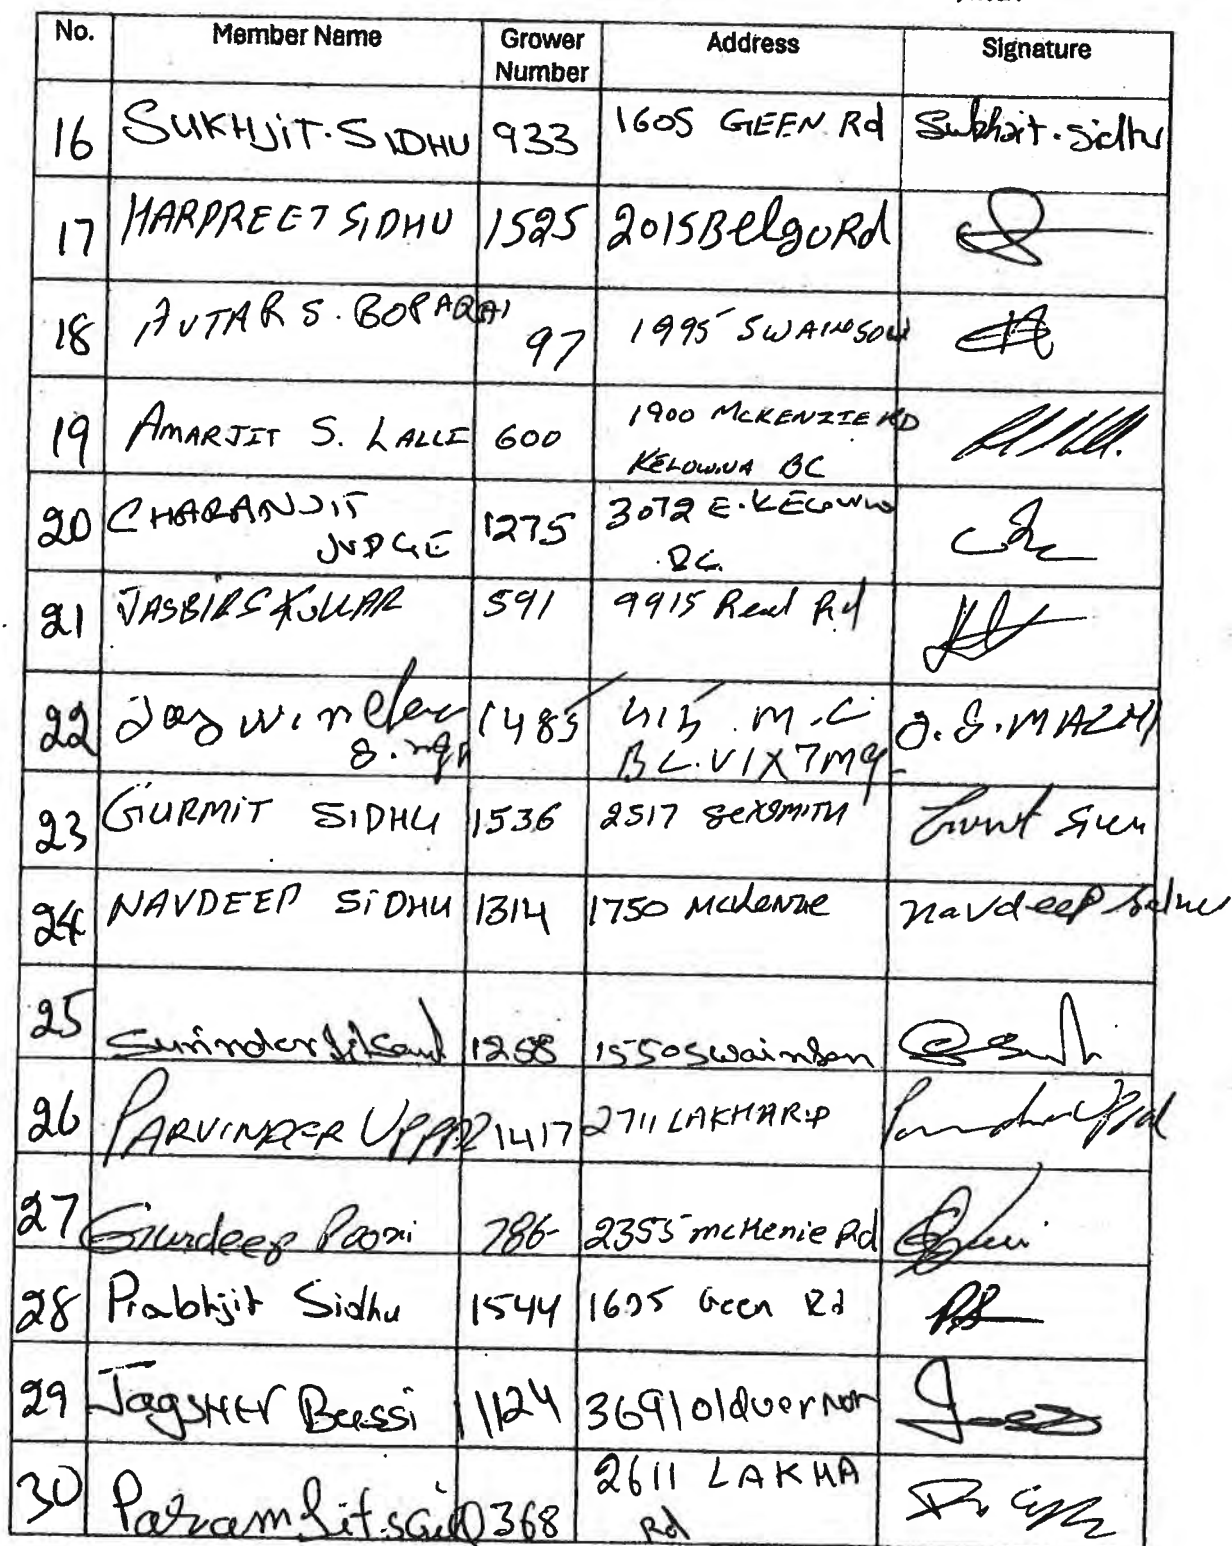 No. Member Name Grower Number Address Signature
16 SUKHJIT.SIDHU 933 1605 GEEN Rd Sukhjit.sidhu
17 HARPREET SIDHU 1525 2015 Belgo Rd
18 AVTAR S. BOPARAI 97 1995 SWAINSON
19 AMARJIT S. LALLI 600 1900 MCKENZIE RD
KELOWNA BC
20 CHARANJIT 1275 3072 E. KELOWNA
JUDGE BC.
21 JASBIR S KULLAR 591 9915 Read Rd
22 1485 M.C
B.C. V1X7M9
23 GURMIT SIDHU 1536 2517 SEXSMITH
24 NAVDEEP SIDHU 1314 1750 McKenzie navdeep Sidhu
25 1258 1550 Swainson
26 PARVINDER UPPAL 1417 2711 LAKHA RD Parvinder Uppal
27 Gurdeep Pooni 786- 2355 mcKenie Rd
28 Prabhjit Sidhu 1544 1605 Geen Rd
29 Jagsher Bassi 1124 3691 old vernon
30 Paramjit.sGill 0368 2611 LAKHA
Rd